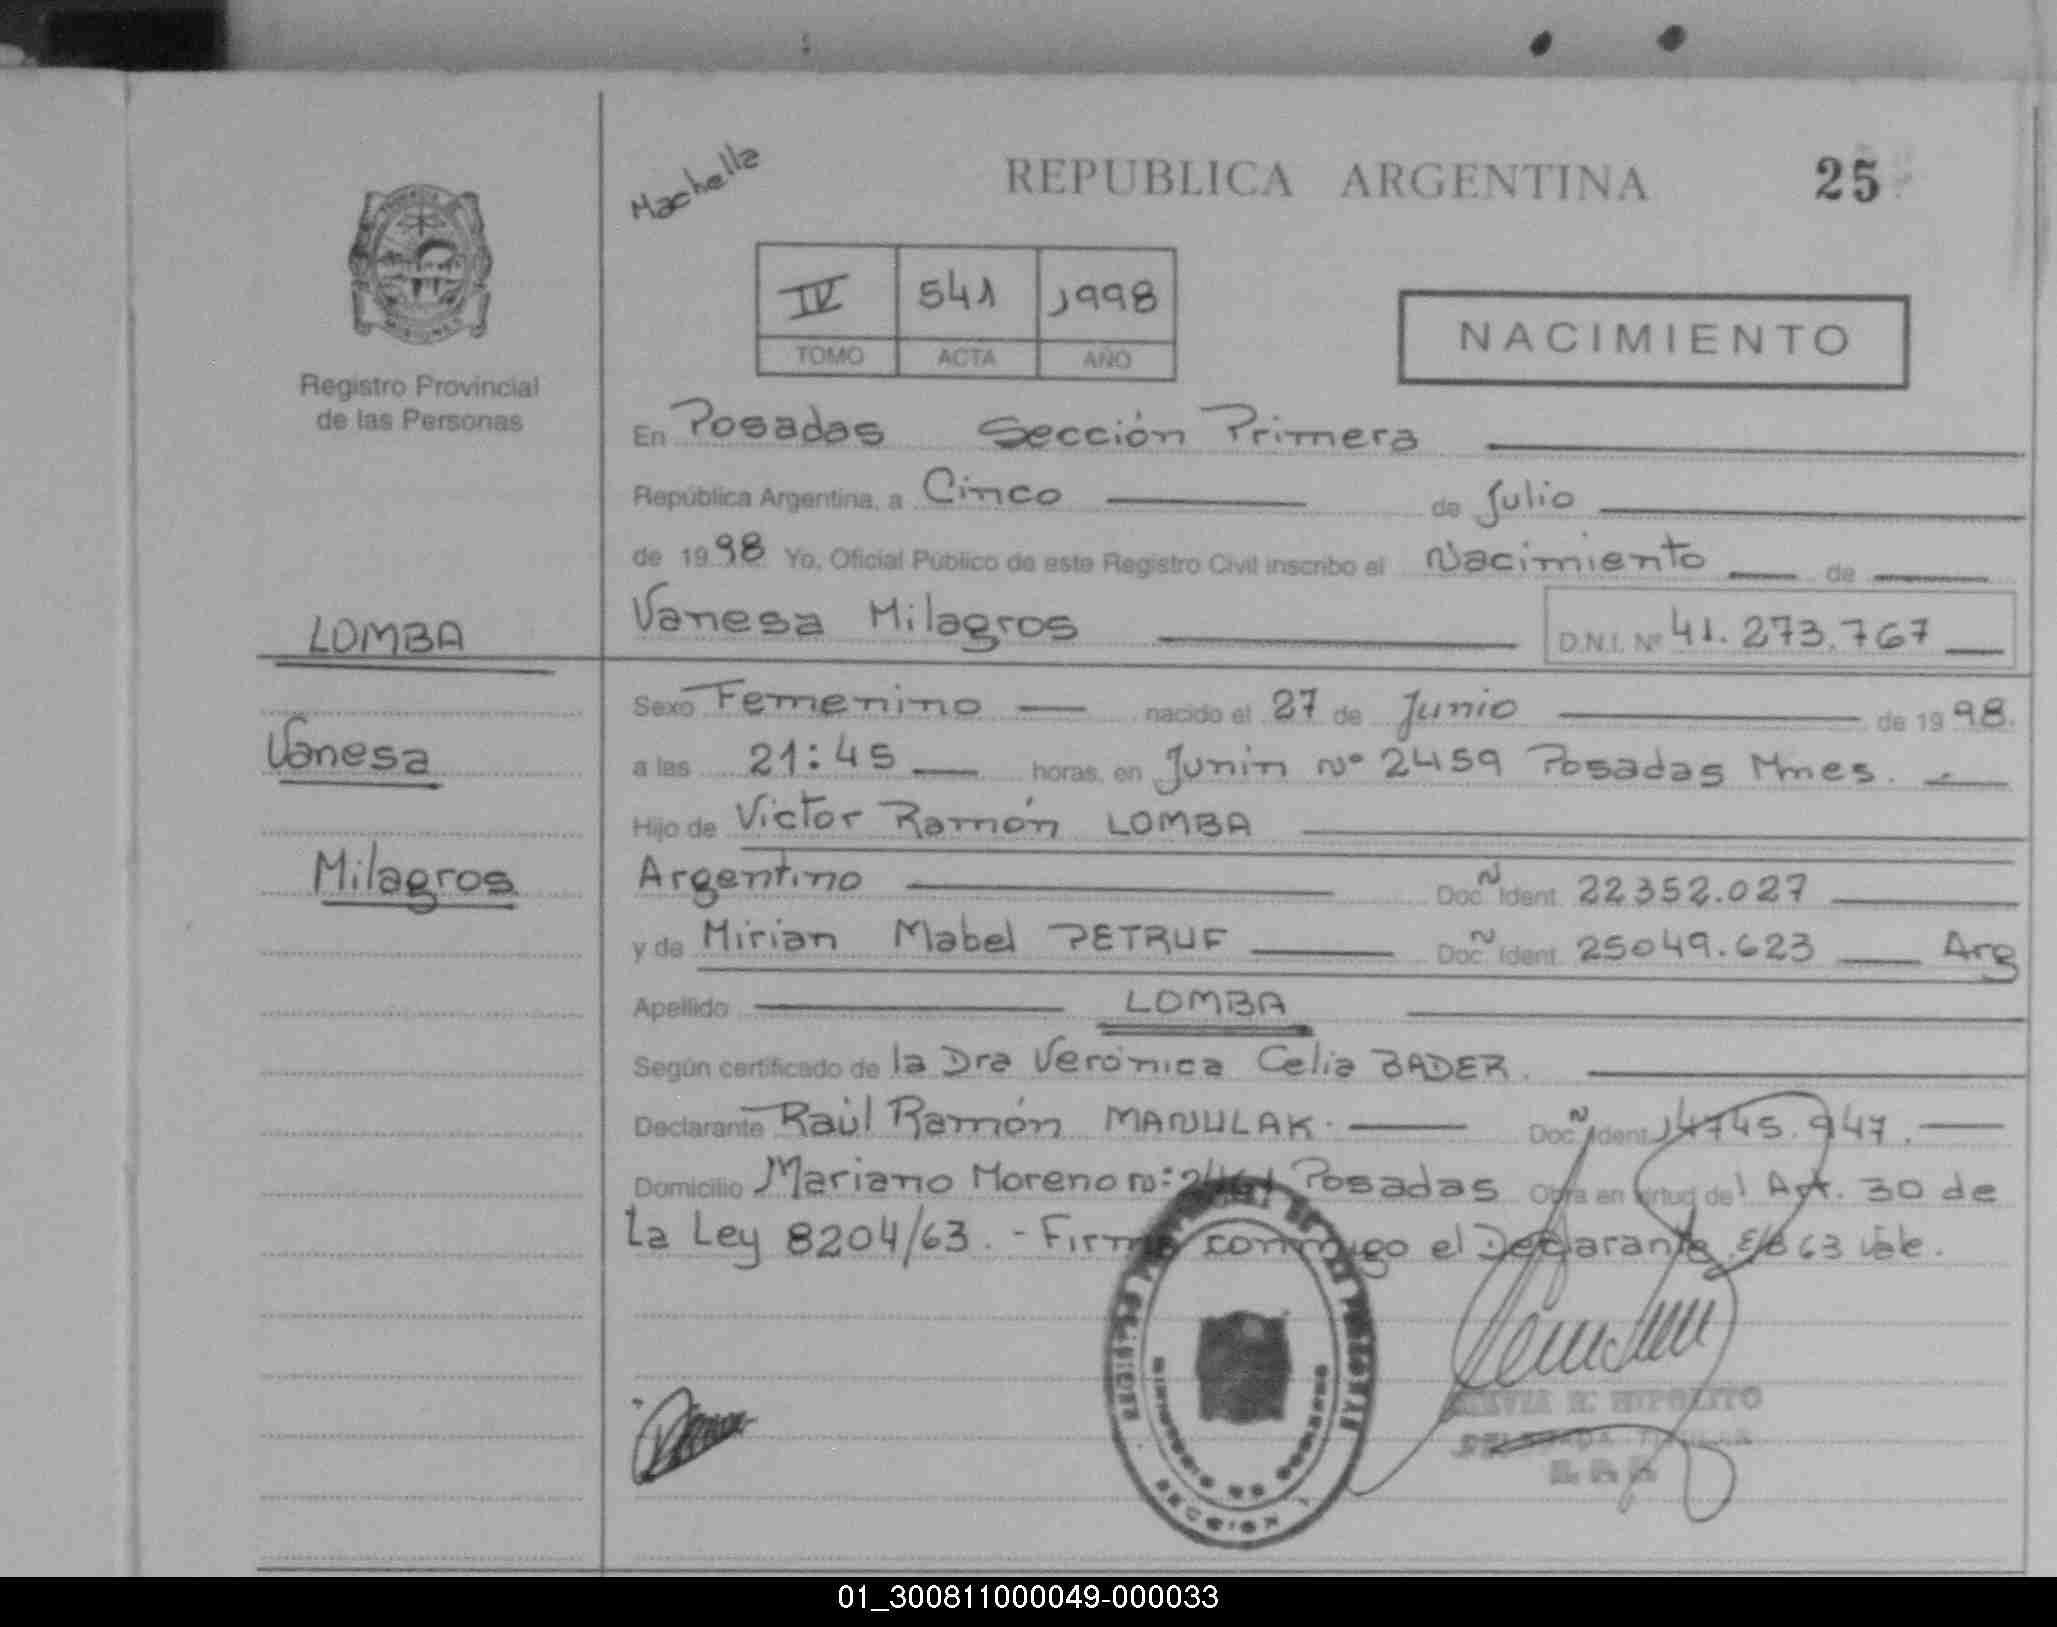 Machella
REPUBLICA ARGENTINA
25
IV 541 1998
TOMO ACTA AÑO
NACIMIENTO
Registro Provincial
de las Personas
En Posadas Sección Primera
República Argentina, a Cinco de Julio
de 1998 Yo, Oficial Público de este Registro Civil inscribo el Nacimiento de
LOMBA
Vanesa Milagros D.N.I. Nº 41.273.767
Sexo Femenino nacido el 27 de Junio de 1998.
Vanesa
a las 21:45 horas, en Junin Nº 2459 Posadas Mnes.
Hijo de Victor Ramón LOMBA
Milagros
Argentino Doc. Ident. 22352.027
y de Mirian Mabel PETRUF Doc. Ident. 25049.623 Arg
Apellido LOMBA
Según certificado de la Dra Verónica Celia BADER.
Declarante Raúl Ramón MANULAK. Doc. Ident. 14745.947.
Domicilio Mariano Moreno Nº: Posadas Obra en virtud del Art. 30 de
la Ley 8204/63. - Firma conmigo el Declarante. E/B 63 Vale.
MINISTERIO DE GOBIERNO
SECCION 1
HIPOLITO
01_300811000049-000033